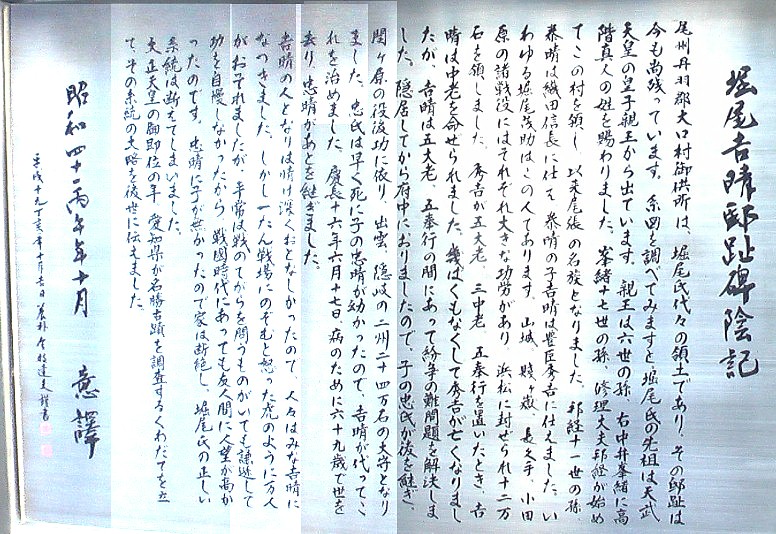 堀尾吉晴邸趾碑陰記
尾州丹羽郡大口村御供所は、堀尾氏代々の領土であり、その邸趾は
今も尚残っています。系図を調べてみますと堀尾氏の先祖は天武
天皇の皇子親王から出ています。親王は六世の孫、右中弁峯緒に高
階真人の姓を賜わりました。峯緒十七世の孫、修理大夫邦経が始め
てこの村を領し、以来尾張の名族となりました。邦経十一世の孫、
泰晴は織田信長に仕え、泰晴の子吉晴は豊臣秀吉に仕えました。い
わゆる堀尾茂助はこの人であります。山城、賤ヶ嶽、長久手、小田
原の諸戦役にはそれぞれ大きな功労があり、浜松に封ぜられ十二万
石を領しました。秀吉が五大老、三中老、五奉行を置いたとき、吉
晴は中老を命せられました。幾ばくもなくして秀吉が亡くなりまし
たが、吉晴は五大老、五奉行の間にあって紛争の難問題を解決しま
した。隠居してから府中におりましたので、子の忠氏が後を継ぎ、
関ヶ原の役後功に依り、出雲、隠岐の二州二十四万石の大守となり
ました。忠氏は早く死に子の忠晴が幼かったので、吉晴が代ってこ
れを治めました。慶長十六年六月十七日、病のために六十九歳で世を
去り、忠晴があとを継ぎました。
吉晴の人となりは情け深くおとなしかったので、人々はみな吉晴に
なつきました。しかし一たん戦場にのぞむと怒った虎のように万人
がおそれましたが、平常は戦のてがらを問うものがいても謙遜して
功を自慢しなかったから、戦国時代にあっても友人間に人望が高か
ったのです。忠晴に子が無かったので家は断絶し、堀尾氏の正しい
系統は断えてしまいました。
大正天皇の御即位の年、愛知県が名勝古蹟を調査するくわだてを立
て、その系統の大略を後世に伝えました。
昭和四十一丙午年十月 意譯
平成十九丁亥年十月吉日